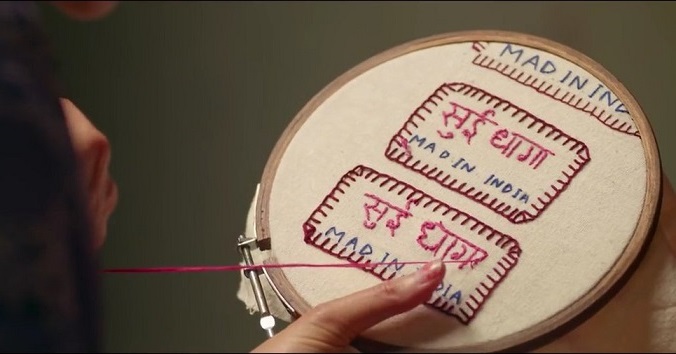 MAD IN IND
सुई धागा
MAD IN INDIA
सुई धागा
MAD IN INDIA